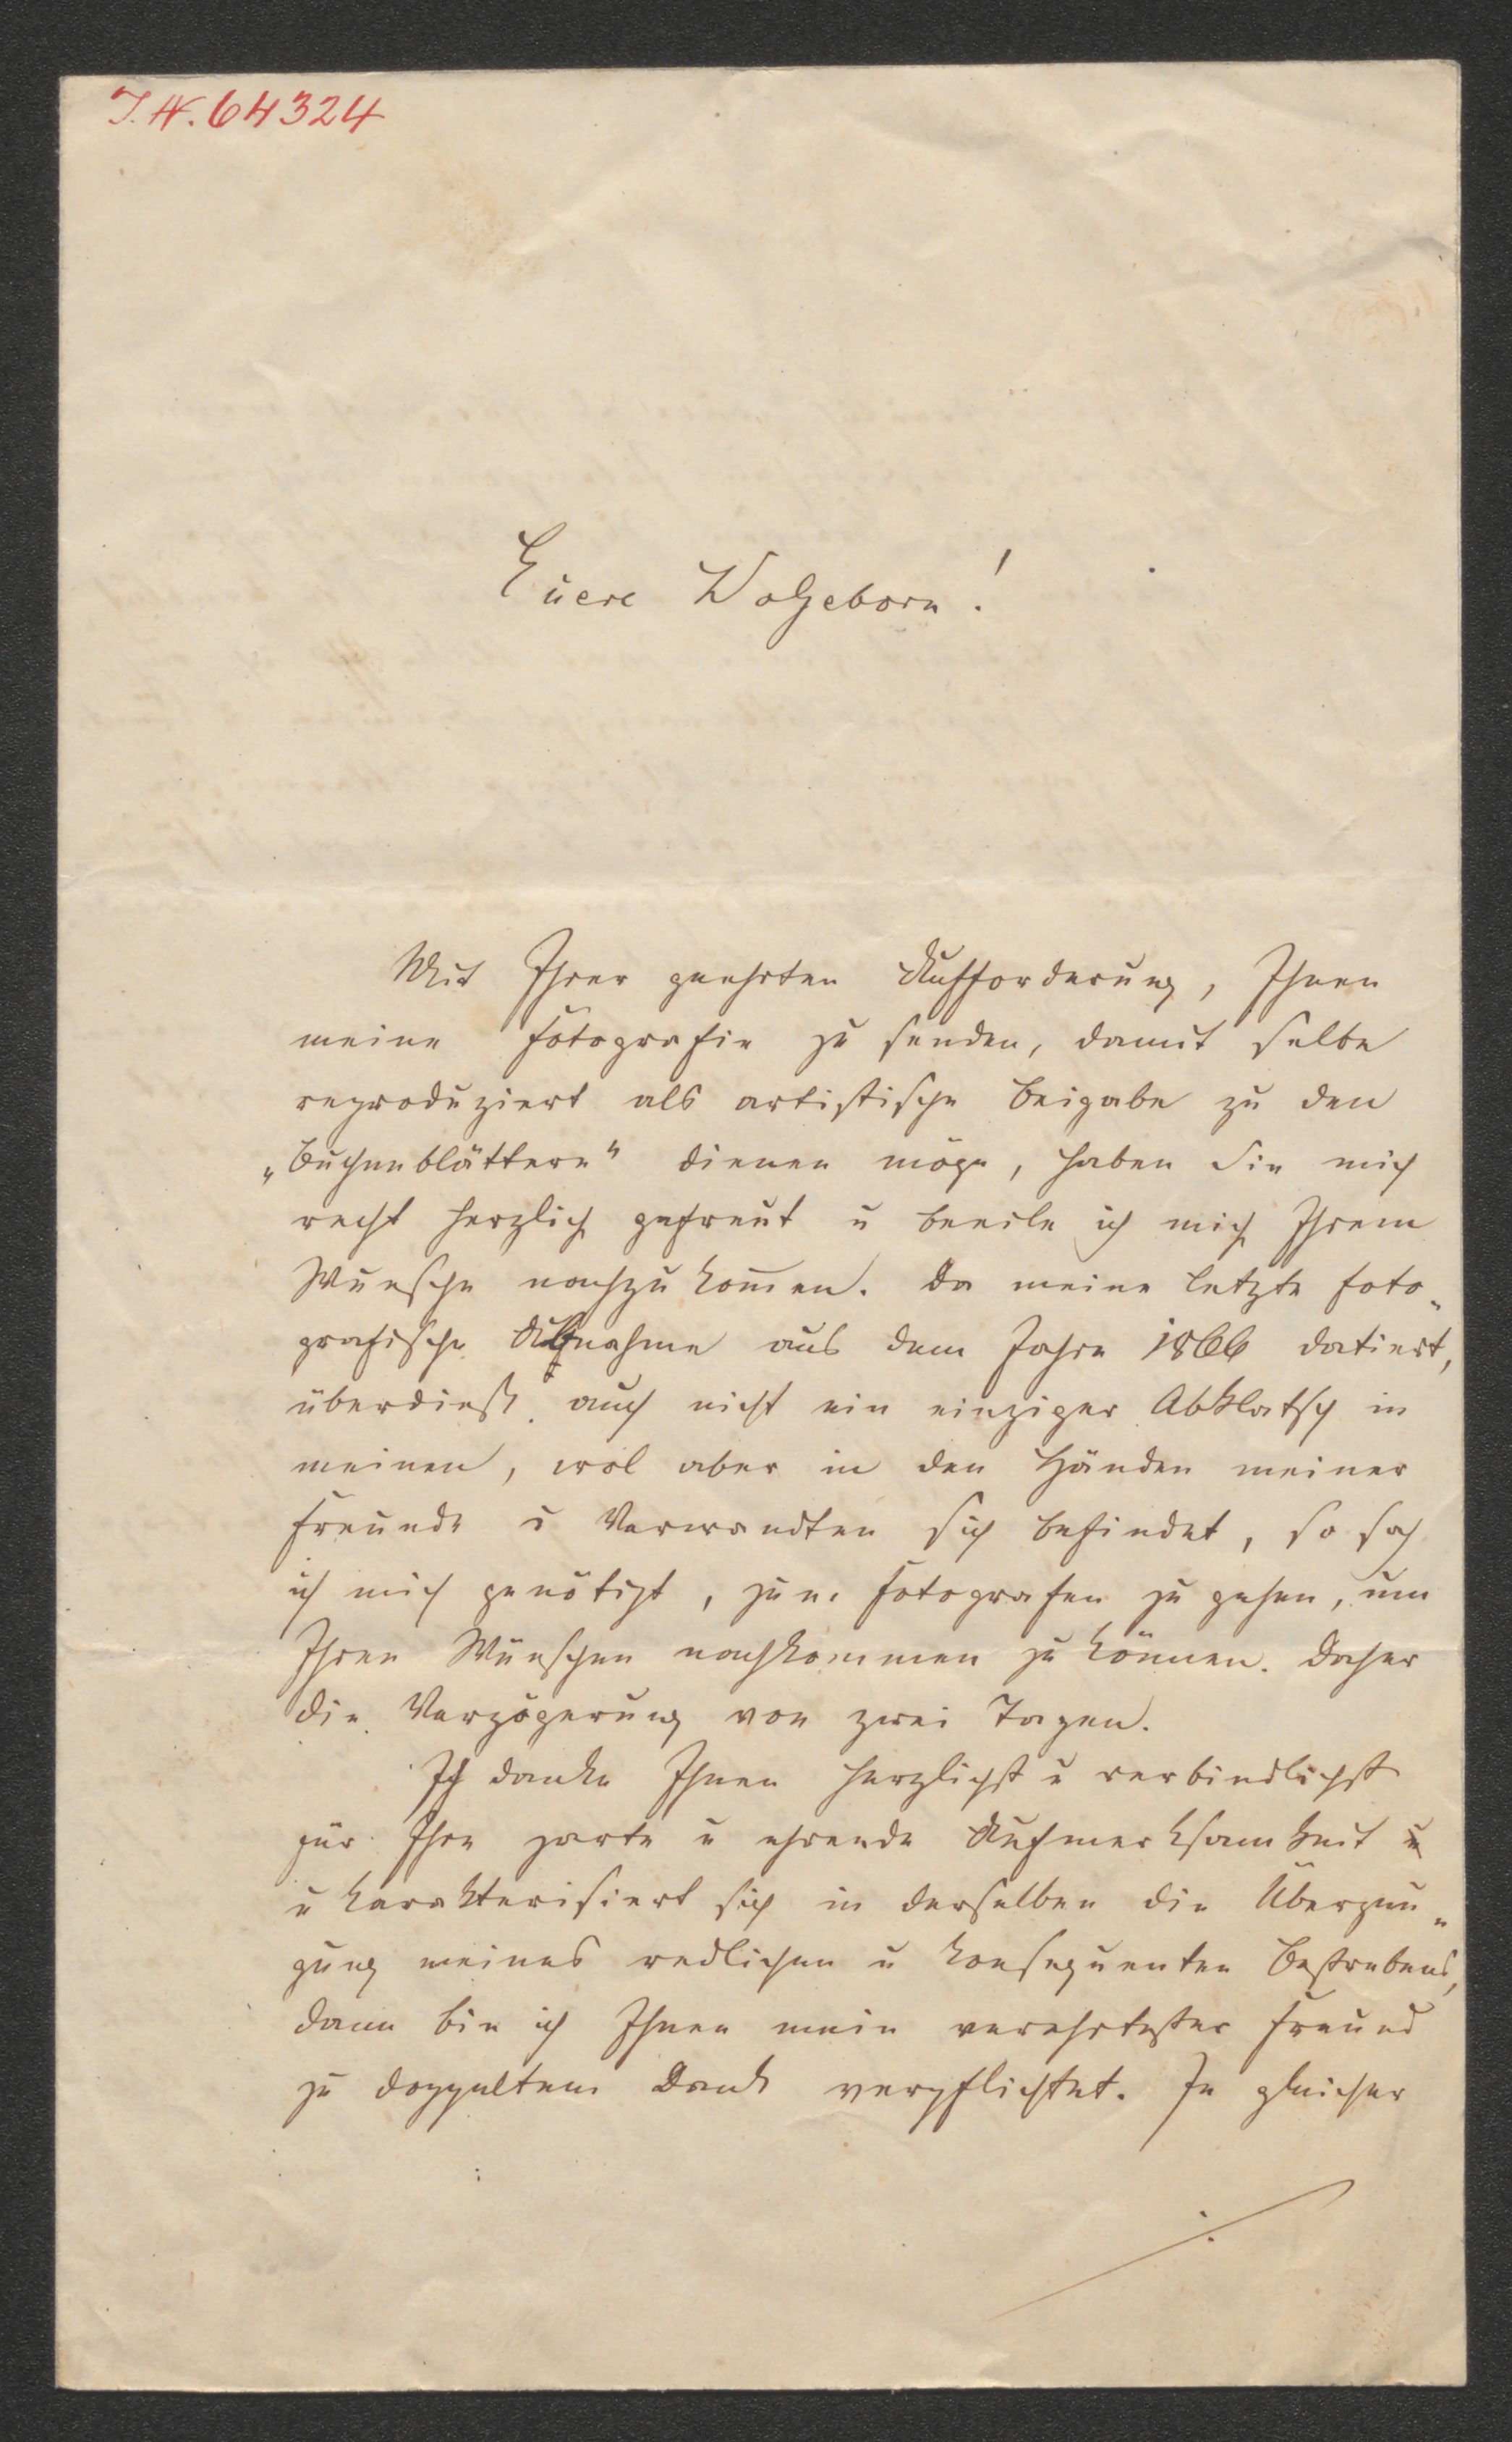 I. N. 64324
Euere Wolgeborn!
Mit Ihrer geehrten Aufforderung, Ihnen
meine Fotografie zu senden, damit selbe
reproduziert als artistische Beigabe zu den
„Buchenblättern" dienen möge, haben Sie mich
recht herzlich gefreut u beeile ich mich Ihrem
Wunsche nachzukom̄en. Da meine letzte foto„
grafische Aufnahme aus dem Jahre 1866 datiert,
überdieß auch nicht ein einziger Abklatsch in
meinen, wol aber in den Händen meiner
Freunde u Verwandten sich befindet, so sah
ich mich genötigt, zum Fotografen zu gehen, um
Ihren Wünschen nachkommen zu können. Daher
die Verzögerung von zwei Tagen.
Ich danke Ihnen herzlichst u verbindlichst
für Ihre zarte u ehrende Aufmerksamkeit u
u karakterisiert sich in derselben die Überzeu„
gung meines redlichen u konsequenten Bestrebens,
dann bin ich Ihnen mein verehrtester Freund
zu doppeltem Dank verpflichtet. In gleicher
./.